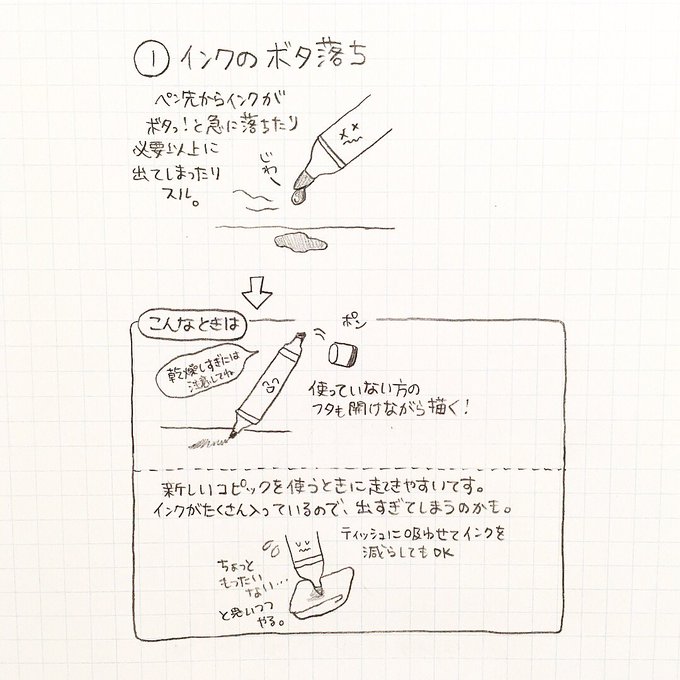 ① インクのボタ落ち
ペン先からインクが
ボタっ!と急に落ちたり
必要以上に
出てしまったり
スル。
じわ〜
こんなときは
ポン
乾燥しすぎには
注意してね
使っていない方の
フタも開けながら描く!
新しいコピックを使うときに起きやすいです。
インクがたくさん入っているので、出すぎてしまうのかも。
ティッシュに吸わせてインクを
減らしてもOK
ちょっと
もったい
ない…
と思いつつ
やる。